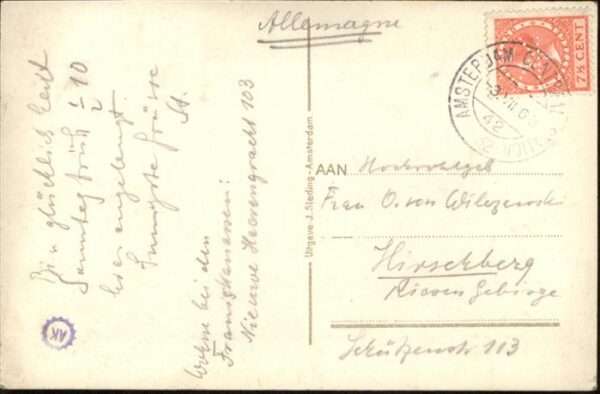 Allemagne
7½ CENT
AMSTERDAM CENTR
42
Bin glücklich heut
Sonntag früh ½ 10
hier angelangt.
Innigste Grüsse
Wohne bei den
Franziskanern:
Nieuwe Heerengracht 103
Uitgave J. Sleding - Amsterdam
AAN
Frau O. von Wilczewski
Hirschberg
Riesen Gebirge
Schützenstr 113
AK